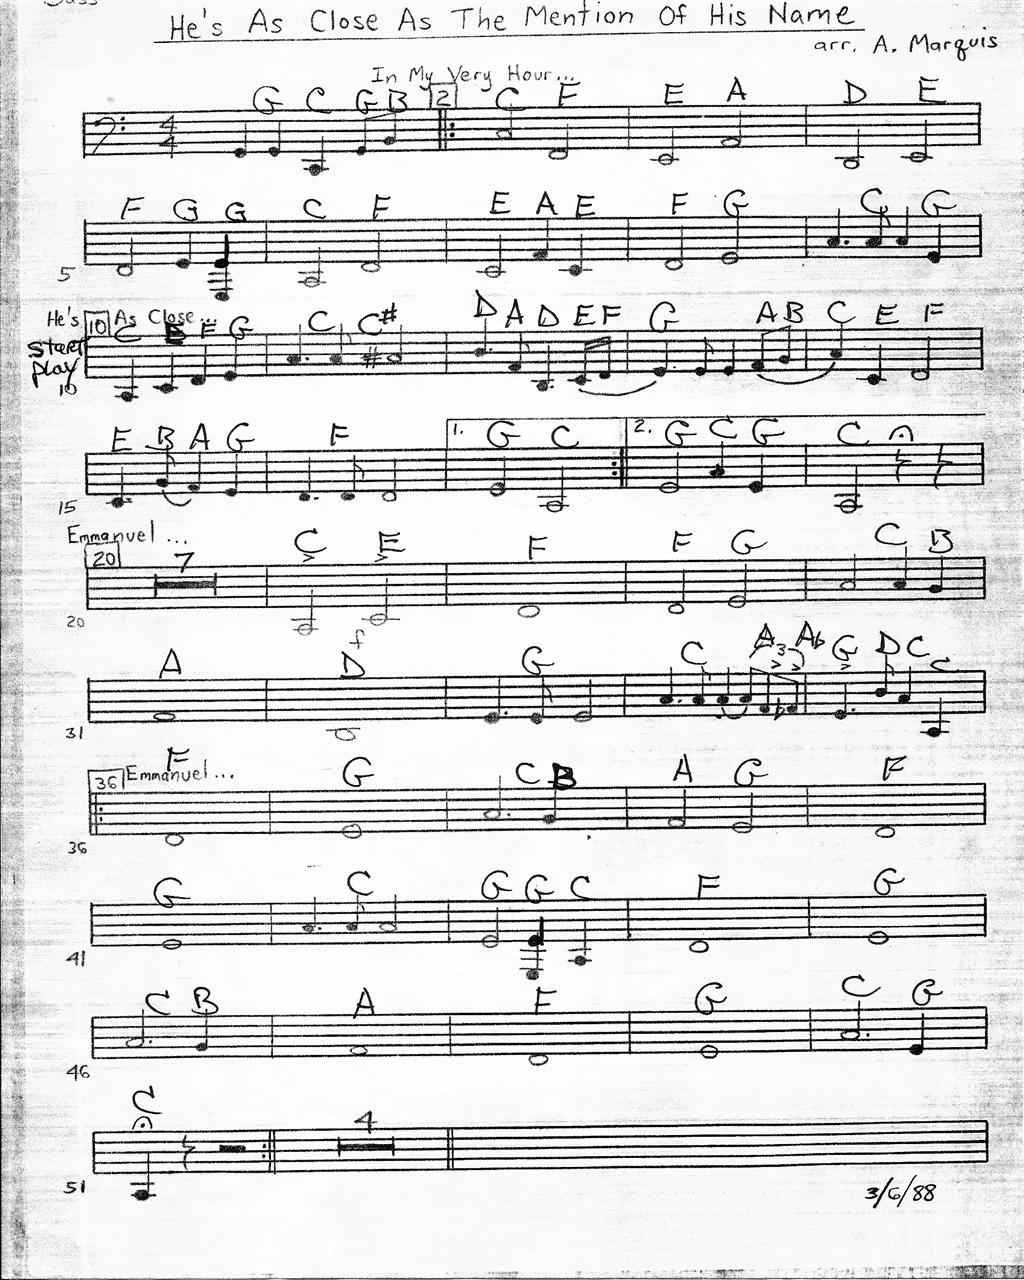 Bass
He's As Close As The Mention Of His Name
arr. A. Marquis
In My Very Hour...
G C G B 2 C F E A D E
4
4
F G G C F E A E F G C G
5
He's 10 As Close...
C E F G C C# D A D E F G A B C E F
Start
play
10
E B A G F 1. G C 2. G C G C
15
Emmanuel ...
20 7 C E F F G C B
20
f
A D G C A 3 Ab G D C C
31
36 Emmanuel...
F G C B A G F
36
G C G G C F G
41
C B A F G C G
46
C 4
51
3/6/88